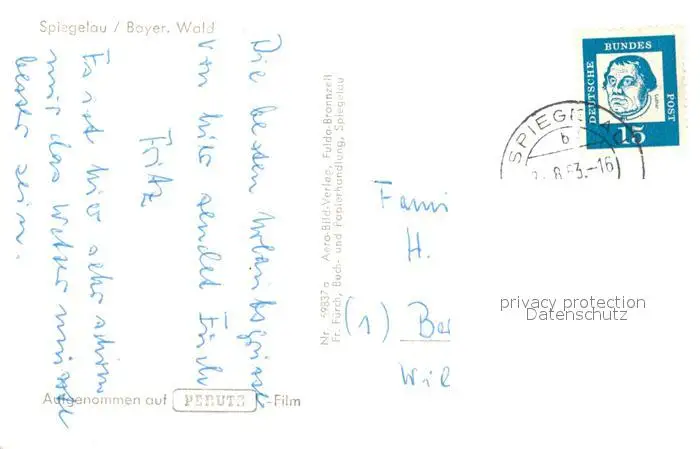 Spiegelau / Bayer. Wald
Die besten Urlaubsgrüsse
von hier sendet Euch
Fritz
Es ist hier sehr schön
nur das Wetter müsste
besser sein.
Aufgenommen auf PERUTZ-Film
Nr. 59837a Aero-Bild-Verlag, Fulda-Bronnzell
Fr. Fürch, Buch- und Papierhandlung, Spiegelau
DEUTSCHE BUNDES POST
Luther
15
SPIEGE
b
.8.63.-16
Fami
H.
(1) Ber
Wil
privacy protection
Datenschutz